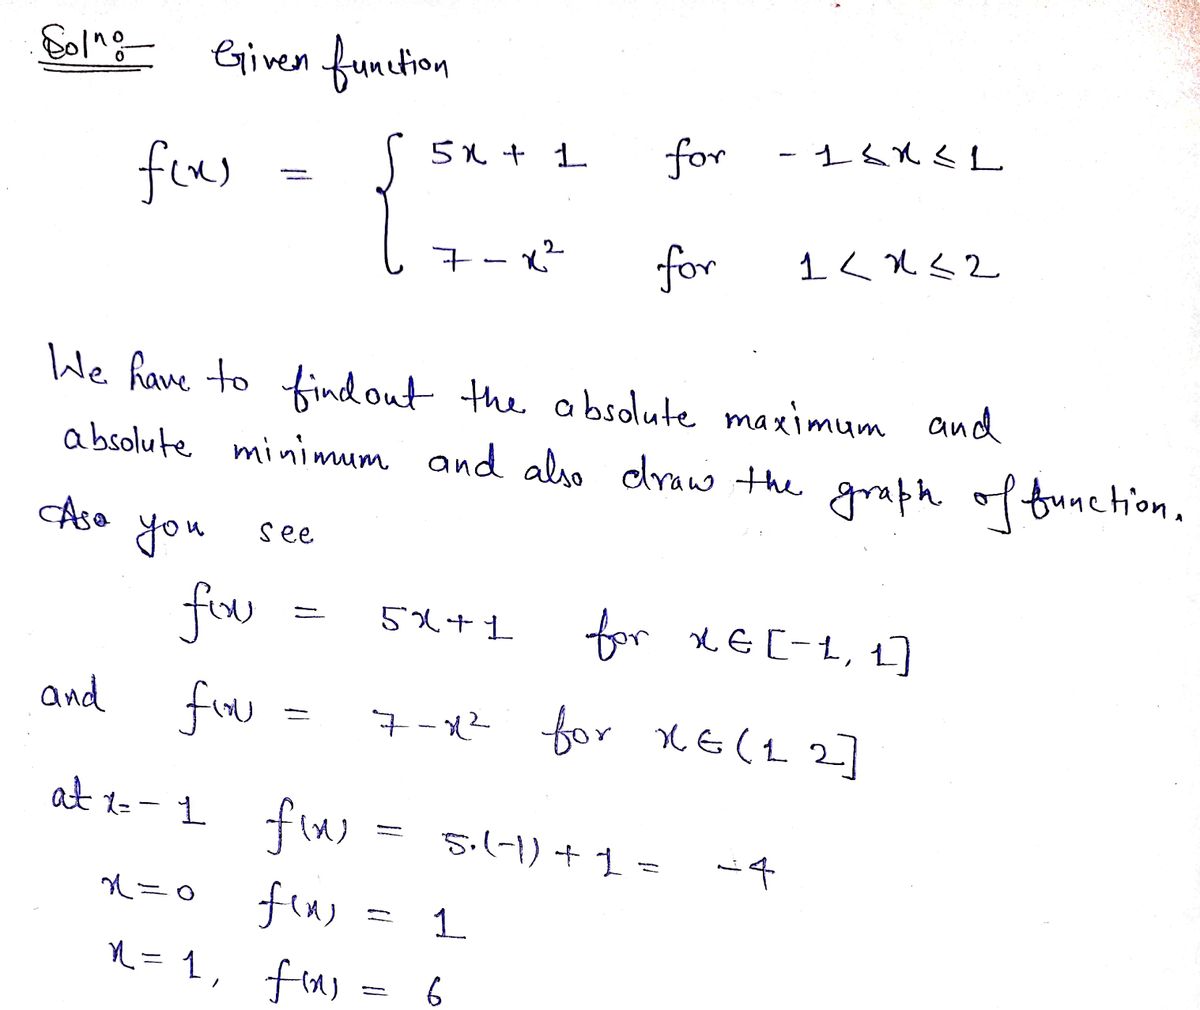 Solno:- Given function
f(x) = { 5x + 1 for - 1 ≤ x ≤ 1
7 - x² for 1 < x ≤ 2
We have to findout the absolute maximum and
absolute minimum and also draw the graph of function.
As you see
f(x) = 5x+1 for x ∈ [-1, 1]
and f(x) = 7-x² for x ∈ (1 2]
at x=-1 f(x) = 5.(-1) + 1 = -4
x=0 f(x) = 1
x=1, f(x) = 6